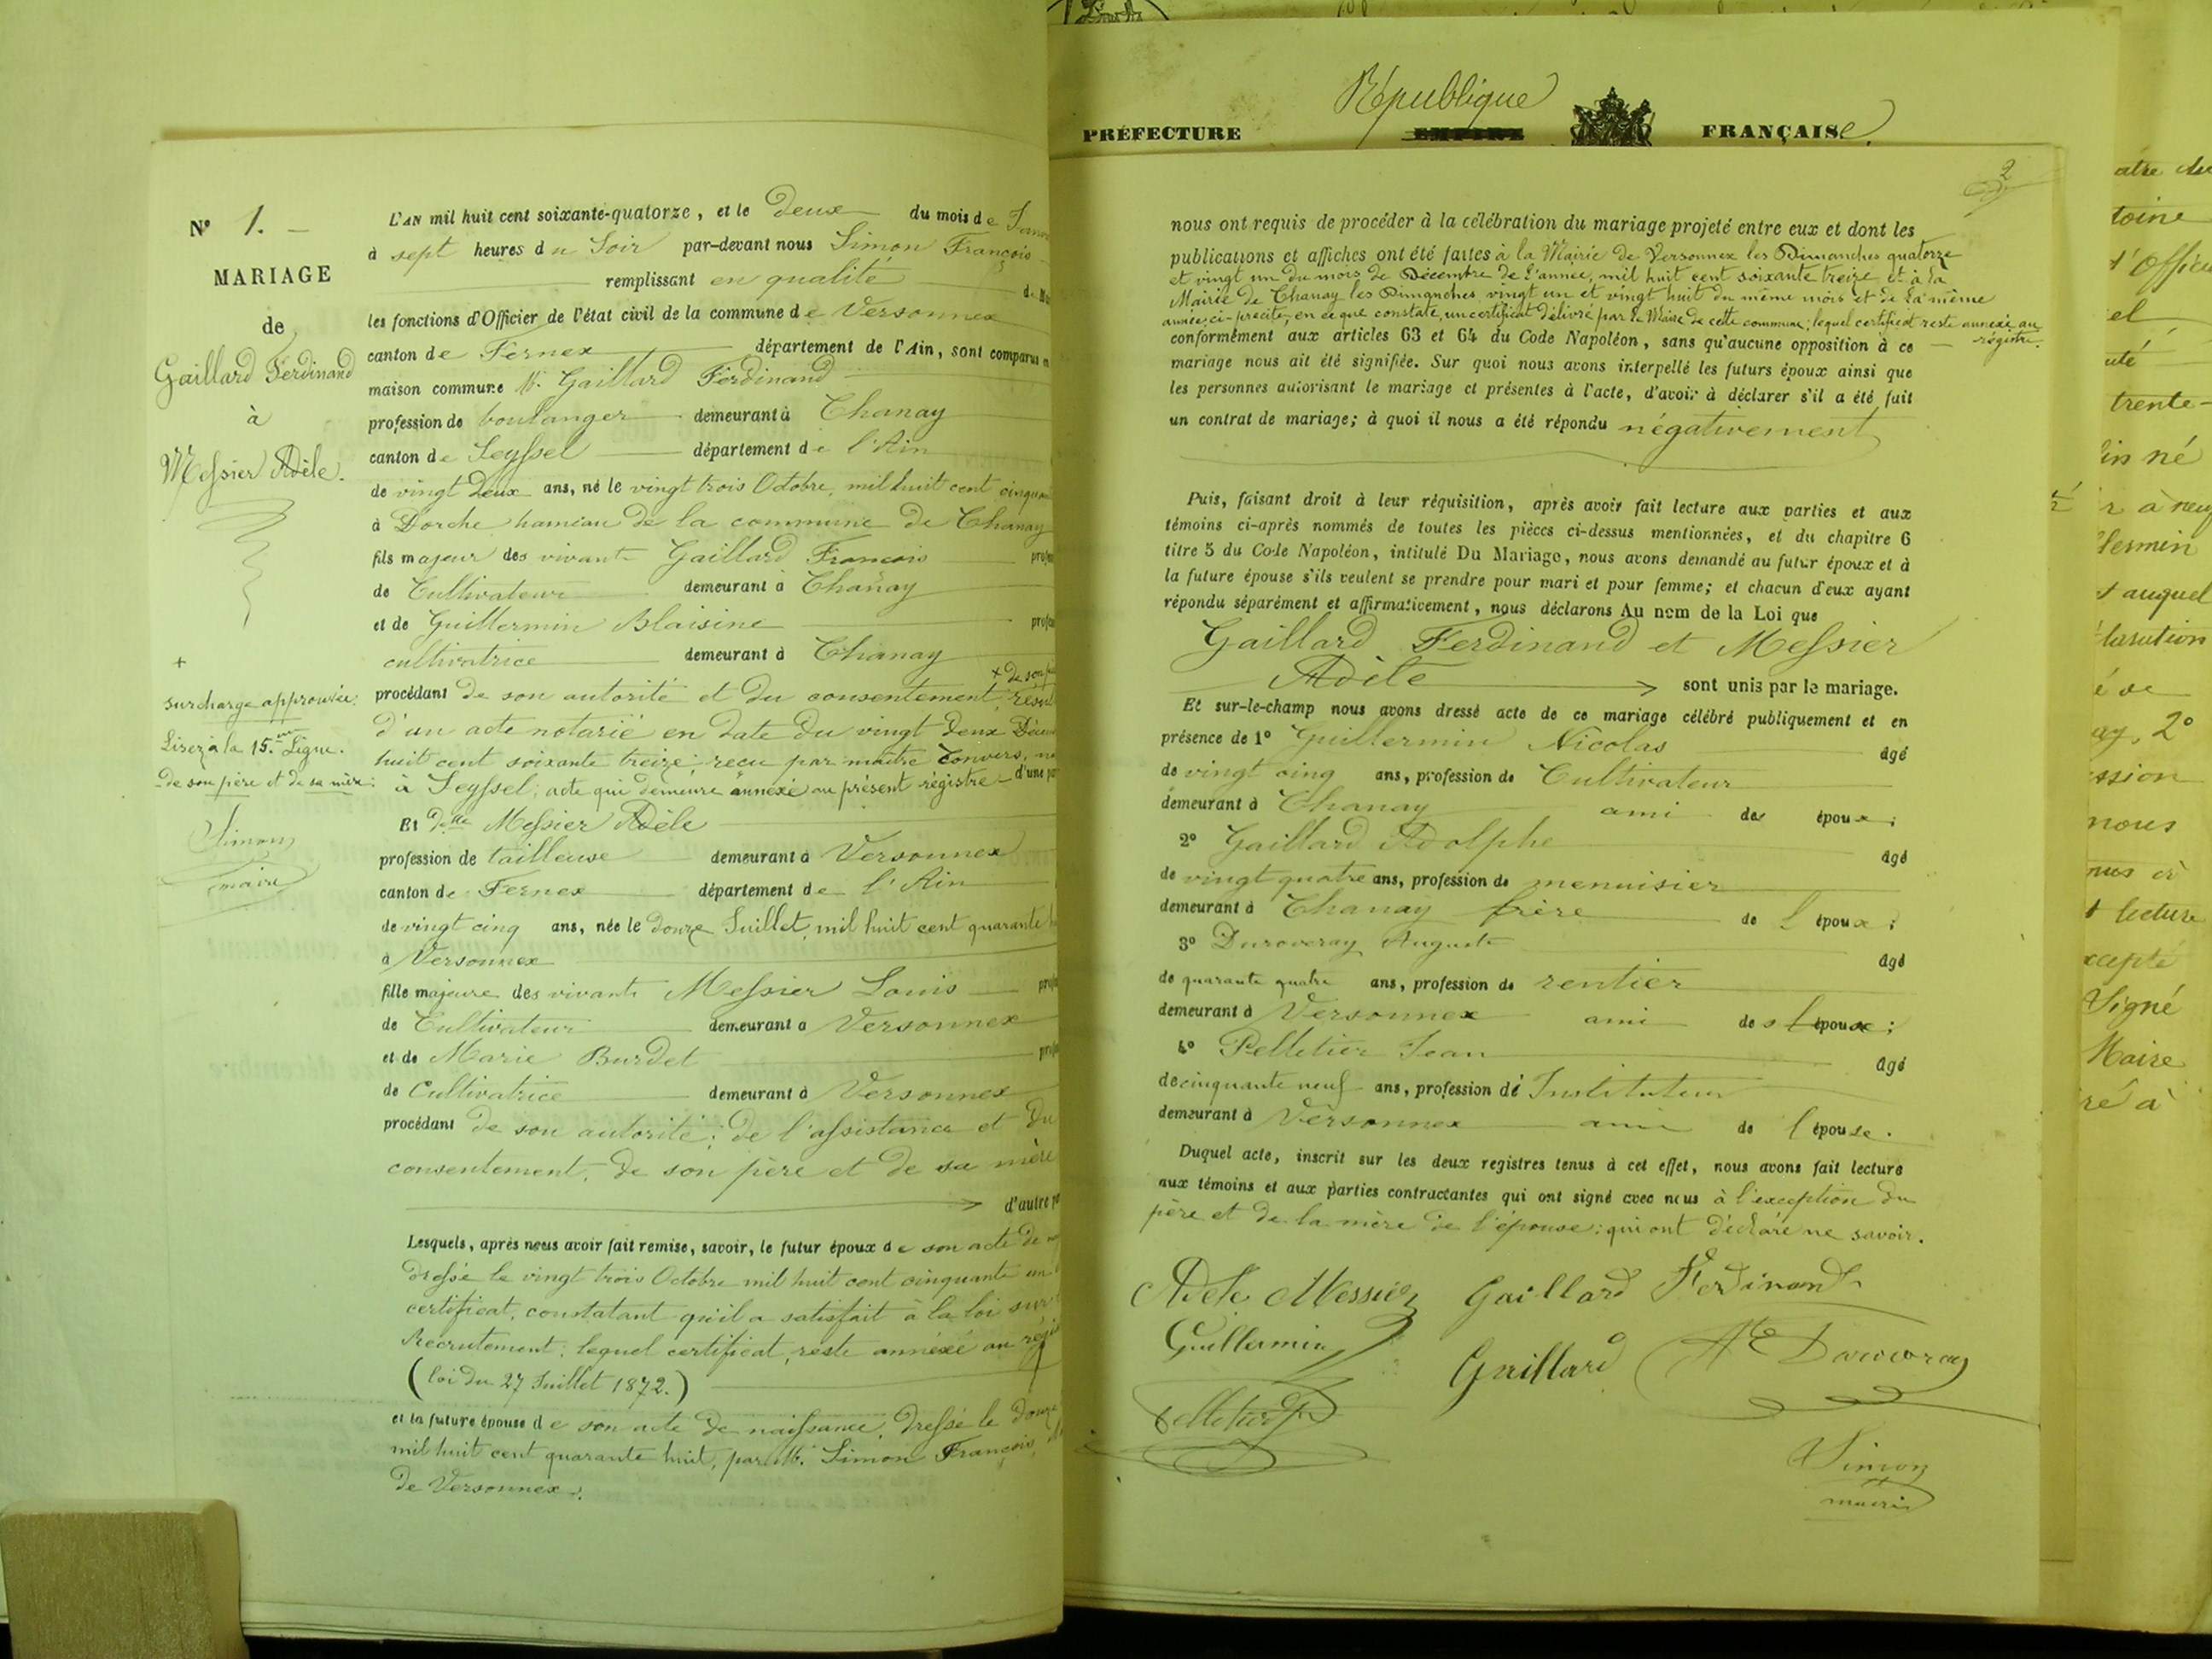 N° 1.
MARIAGE
de
Gaillard Ferdinand
à
Messier Adèle.
+
surcharge approuvée.
Lisez à la 15.me Ligne.
de son père et de sa mère.
Simon
maire
L'AN mil huit cent soixante-quatorze, et le deux du mois de
à sept heures du Soir par-devant nous Simon François
remplissant en qualité de
les fonctions d'Officier de l'état civil de la commune de Versonnex
canton de Fernex département de l'Ain, sont comparus
maison commune M. Gaillard Ferdinand
profession de boulanger demeurant à Chanay
canton de Seyssel département de l'Ain
de vingt deux ans, né le vingt trois Octobre, mil huit cent
à Dorche hameau de la commune de Chanay
fils majeur des vivants Gaillard François
de Cultivateur demeurant à Chanay
et de Guillermin Blaisine
cultivatrice demeurant à Chanay
+ de son
procédant de son autorité et du consentement,
d'un acte notarié en date du vingt deux
huit cent soixante treize; reçu par maître Convers,
à Seyssel; acte qui demeure annéxé au présent régistre d'une
Et delle Messier Adèle
profession de tailleuse demeurant à Versonnex
canton de Fernex département de l'Ain
de vingt cinq ans, née le douze Juillet, mil huit cent quarante
à Versonnex
fille majeure des vivants Messier Louis
de Cultivateur demeurant à Versonnex
et de Marie Burdet
de Cultivatrice demeurant à Versonnex
procédant de son autorité; de l'assistance et du
consentement, de son père et de sa mère
d'autre
Lesquels, après nous avoir fait remise, savoir, le futur époux de son acte de
dressé le vingt trois Octobre mil huit cent cinquante un
certificat, constatant qu'il a satisfait à la loi sur
Recrutement; lequel certificat, reste annéxé au
(loi du 27 Juillet 1872.)
et la future épouse de son acte de naissance, dressé le douze
mil huit cent quarante huit, par M. Simon François,
de Versonnex.
République
PRÉFECTURE EMPIRE FRANÇAISe.
2
nous ont requis de procéder à la célébration du mariage projeté entre eux et dont les
publications et affiches ont été faites à la Mairie de Versonnex les Dimanches quatorze
et vingt un du mois de Décembre de l'année, mil huit cent soixante treize et à la
Mairie de Chanay les Dimanches vingt un et vingt huit du même mois et de la même
année, ci-précité, en ce que constate, un certificat délivré par le Maire de cette commune; lequel certificat reste annexé au
régistre.
conformément aux articles 63 et 64 du Code Napoléon, sans qu'aucune opposition à ce
mariage nous ait été signifiée. Sur quoi nous avons interpellé les futurs époux ainsi que
les personnes autorisant le mariage et présentes à l'acte, d'avoir à déclarer s'il a été fait
un contrat de mariage; à quoi il nous a été répondu négativement
Puis, faisant droit à leur réquisition, après avoir fait lecture aux parties et aux
témoins ci-après nommés de toutes les pièces ci-dessus mentionnées, et du chapitre 6
titre 5 du Code Napoléon, intitulé Du Mariage, nous avons demandé au futur époux et à
la future épouse s'ils veulent se prendre pour mari et pour femme; et chacun d'eux ayant
répondu séparément et affirmativement, nous déclarons Au nom de la Loi que
Gaillard Ferdinand et Messier
Adèle sont unis par le mariage.
Et sur-le-champ nous avons dressé acte de ce mariage célébré publiquement et en
présence de 1° Guillermin Nicolas âgé
de vingt cinq ans, profession de Cultivateur
demeurant à Chanay ami des époux;
2° Gaillard Adolphe âgé
de vingt quatre ans, profession de menuisier
demeurant à Chanay frère de l'époux;
3° Duroveray Auguste âgé
de quarante quatre ans, profession de rentier
demeurant à Versonnex ami des époux;
4° Pelletier Jean âgé
de cinquante neuf ans, profession d'Instituteur
demeurant à Versonnex ami de l'épouse.
Duquel acte, inscrit sur les deux registres tenus à cet effet, nous avons fait lecture
aux témoins et aux parties contractantes qui ont signé avec nous à l'exception du
père et de la mère de l'épouse; qui ont déclaré ne savoir.
Adele Messier Gaillard Ferdinand
Guillermin Gaillard
Simon
maire
toine
el
trente-
in né
t auquel
ay, 2°
nous
lecture
Signé
Maire